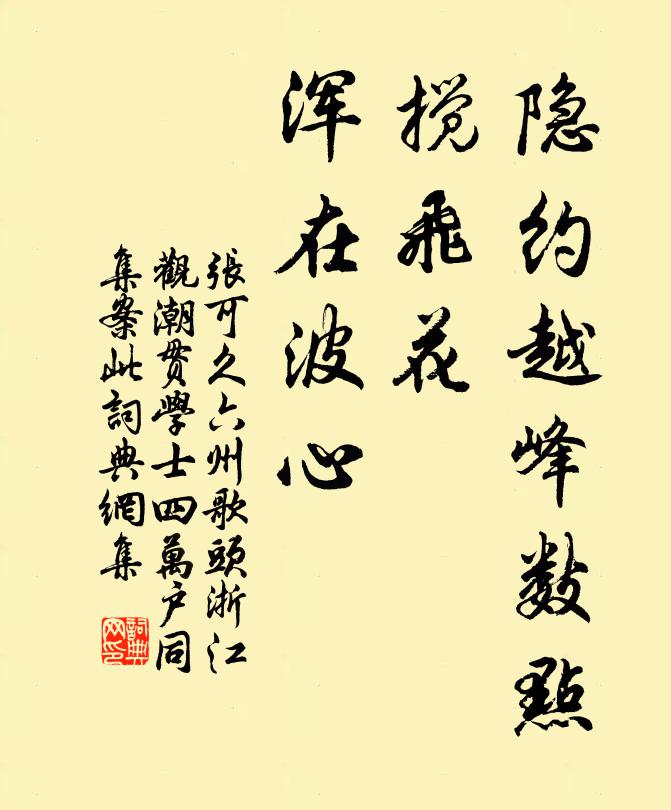 隐约越峰数點
搅飛花
浑在波心
張可久六州歌頭浙江
觀潮贯學士四萬户同
集案此詞典網集
詞典
网印